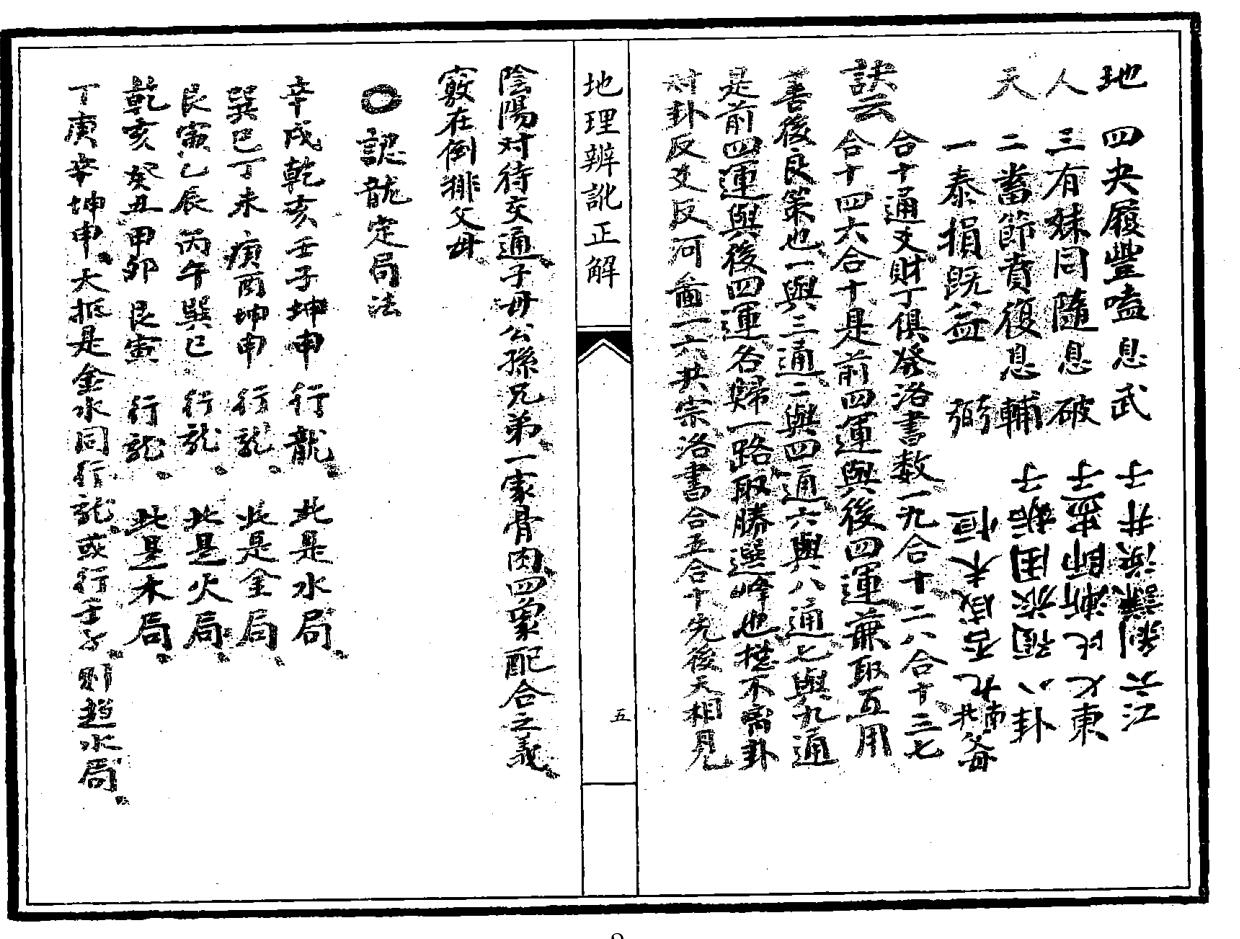 地 四夬履豐嗑息武 子井渙謙剝六江
人 三有妹同隨息破 子蠱師漸比七東
天 二畜節賁復息輔 子姤困旅預八
一泰損既益 弼 恒未咸否九南北父母
合十通爻財丁俱發洛書数一九合十二八合十三七
訣云 合十四六合十是前四運與後四運兼取互用
善後良策也一與三通二與四通六與八通七與九通
是前四運與後四運各歸一路取勝選峰也揔不离卦
对卦反爻反河啚一六共宗洛書合五合十先後天相見
地理辨訛正解
五
陰陽对待交通子母公孫兄弟一家骨肉四象配合之義
竅在倒排父母
○認龍定局法
辛戌乾亥壬子坤申 行龍 此是水局
巽巳丁未庚酉坤申 行龙 此是金局
艮寅乙辰丙午巽巳 行龙 此是火局
乾亥癸丑甲卯艮寅 行龙 此是木局
丁庚辛坤申大抵是金水同行龙或行壬子則趋水局